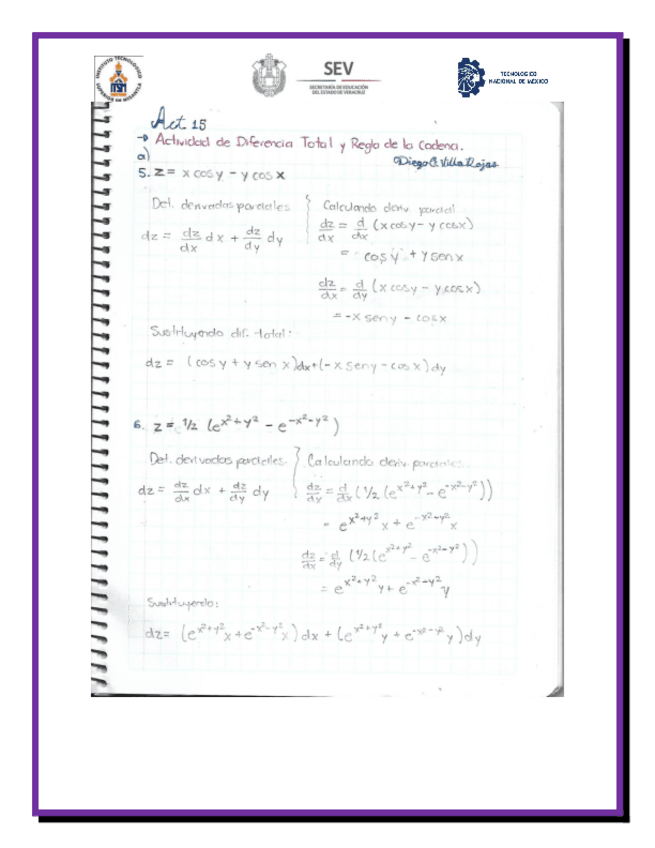 INSTITUTO TECNOLÓGICO
SUPERIOR DE MISANTLA
ITSM
SEV
SECRETARÍA DE EDUCACIÓN
DEL ESTADO DE VERACRUZ
TECNOLOGICO
NACIONAL DE MEXICO
Act 15
→ Actividad de Diferencia Total y Regla de la Cadena.
Diego C. Villa Rojas
a)
5. z = x cos y - y cos x
Det. derivadas parciales
dz = dz/dx dx + dz/dy dy
Calculando deriv. parcial
dz/dx = d/dx (x cos y - y cos x)
= cos y + y sen x
dz/dx = d/dy (x cos y - y cos x)
= -x sen y - cos x
Sustituyendo dif. total:
dz = (cos y + y sen x)dx+(-x sen y - cos x)dy
6. z = 1/2 (e^x²+y² - e^-x²-y²)
Det. derivadas parciales
dz = dz/dx dx + dz/dy dy
Calculando deriv. parciales
dz/dy = d/dx (1/2 (e^x²+y² - e^-x²-y²))
= e^x²+y² x + e^-x²-y² x
dz/dx = d/dy (1/2 (e^x²+y² - e^-x²-y²))
= e^x²+y² y + e^-x²-y² y
Sustituyendo:
dz = (e^x²+y² x + e^-x²-y² x) dx + (e^x²+y² y + e^-x²-y² y)dy